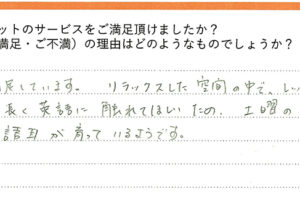 ットのサービスをご満足頂けましたか？
満足・ご不満）の理由はどのようなものでしょうか？
足しています。 リラックスした空間の中で、レッ
長く英語に触れてほしいため、土曜の
語耳が育っているようです。